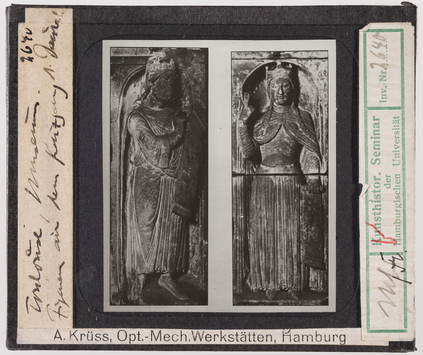 2640
Toulouse! Museum.
Figuren aus dem
Kunsthistor. Seminar
der
Hamburgischen Universität
Inv. Nr. 2640
A. Krüss, Opt.-Mech.Werkstätten, Hamburg